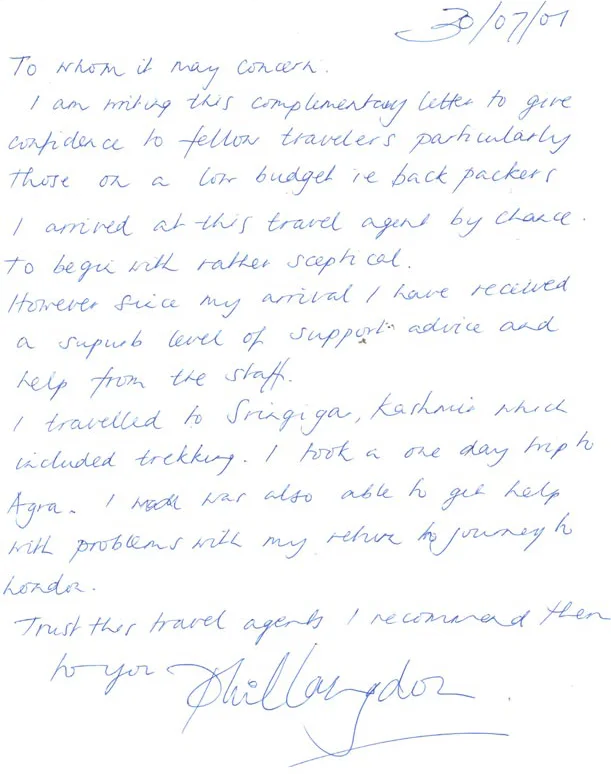 30/07/01
To whom it may concern.
I am writing this complementary letter to give
confidence to fellow travelers particularly
those on a low budget ie back packers
I arrived at this travel agent by chance.
To begin with rather sceptical.
However since my arrival I have received
a supurb level of support advice and
help from the staff.
I travelled to Sringiga, Kashmir which
included trekking. I took a one day trip to
Agra. I was also able to get help
with problems with my return to journey to
London.
Trust this travel agents I recommend them
to you Phil Langdon